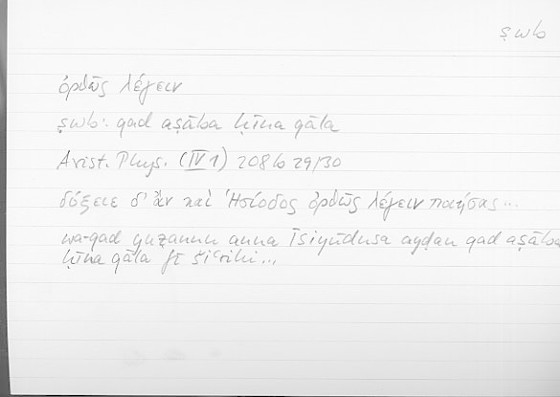 ṣwb
ὀρθῶς λέγειν
ṣwb: qad aṣāba ḥīna qāla
Arist. Phys. (IV 1) 208b 29/30
δόξειε δ' ἂν καὶ Ἡσίοδος ὀρθῶς λέγειν ποιήσας...
wa-qad yuẓannu anna Īsiyūdusa ayḍan qad aṣāba
ḥīna qāla fī šiʿrihi...